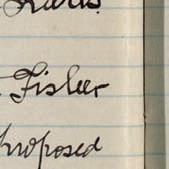 Fisher
proposed